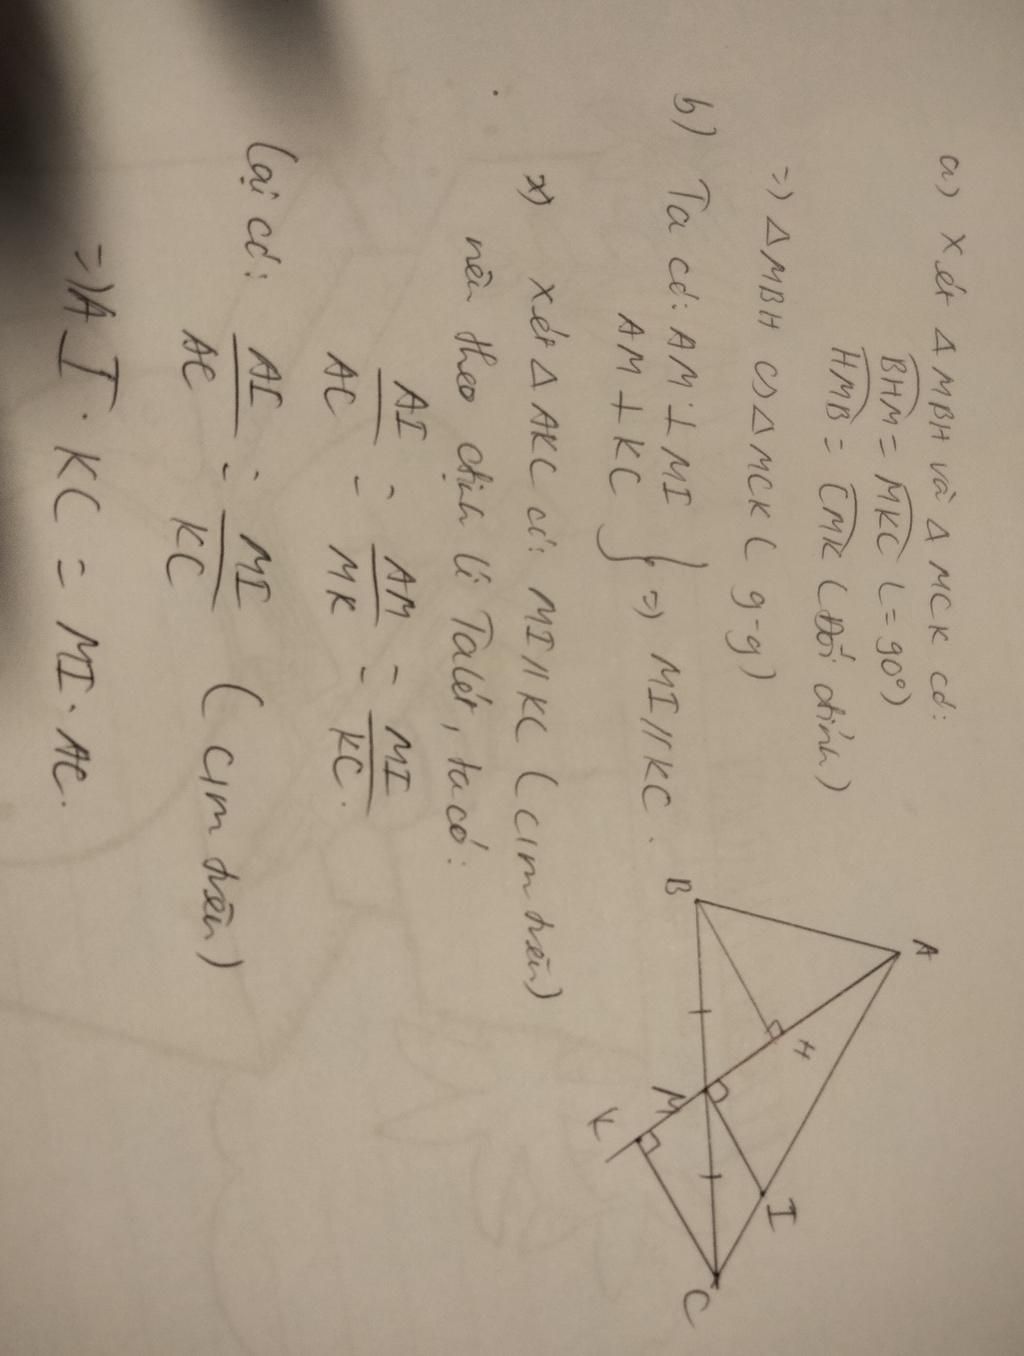 a) Xét Δ MBH và Δ MCK có:
BHM = MKC (= 90°)
HMB = CMK (Đối đỉnh)
=) Δ MBH ∽ Δ MCK ( g-g)
b) Ta có: AM ⊥ MI
AM ⊥ KC } =) MI // KC.
*) Xét Δ AKC có: MI // KC ( cm trên)
nên theo định lí Talét, ta có:
AI/AC = AM/MK = MI/KC.
Lại có: AI/AC = MI/KC ( cm trên)
=) AI . KC = MI . AC.
A
B
H
M
K
I
C